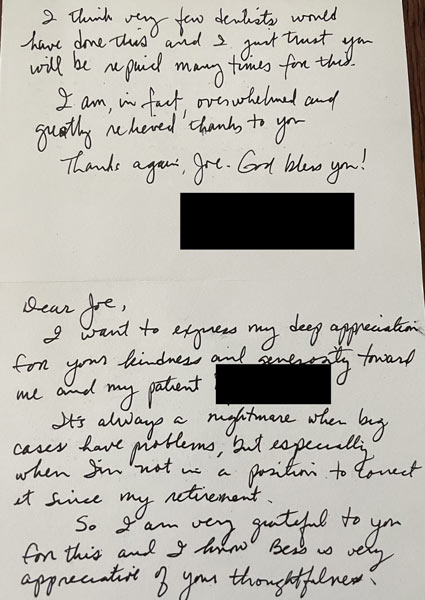 I think very few dentists would
have done this and I just trust you
will be repaid many times for this.
I am, in fact, overwhelmed and
greatly relieved thanks to you
Thanks again, Joe. God bless you!
Dear Joe,
I want to express my deep appreciation
for your kindness and generosity toward
me and my patient
It's always a nightmare when big
cases have problems, but especially
when I'm not in a position to correct
it since my retirement.
So I am very grateful to you
for this and I know Bess is very
appreciative of your thoughtfulness.